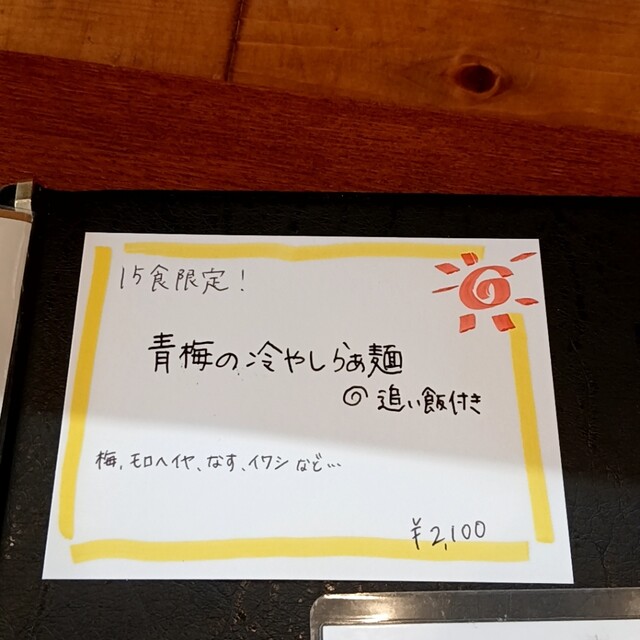 15食限定!
青梅の冷やしらぁ麺
追い飯付き
梅、モロヘイヤ、なす、イワシなど…
¥2,100